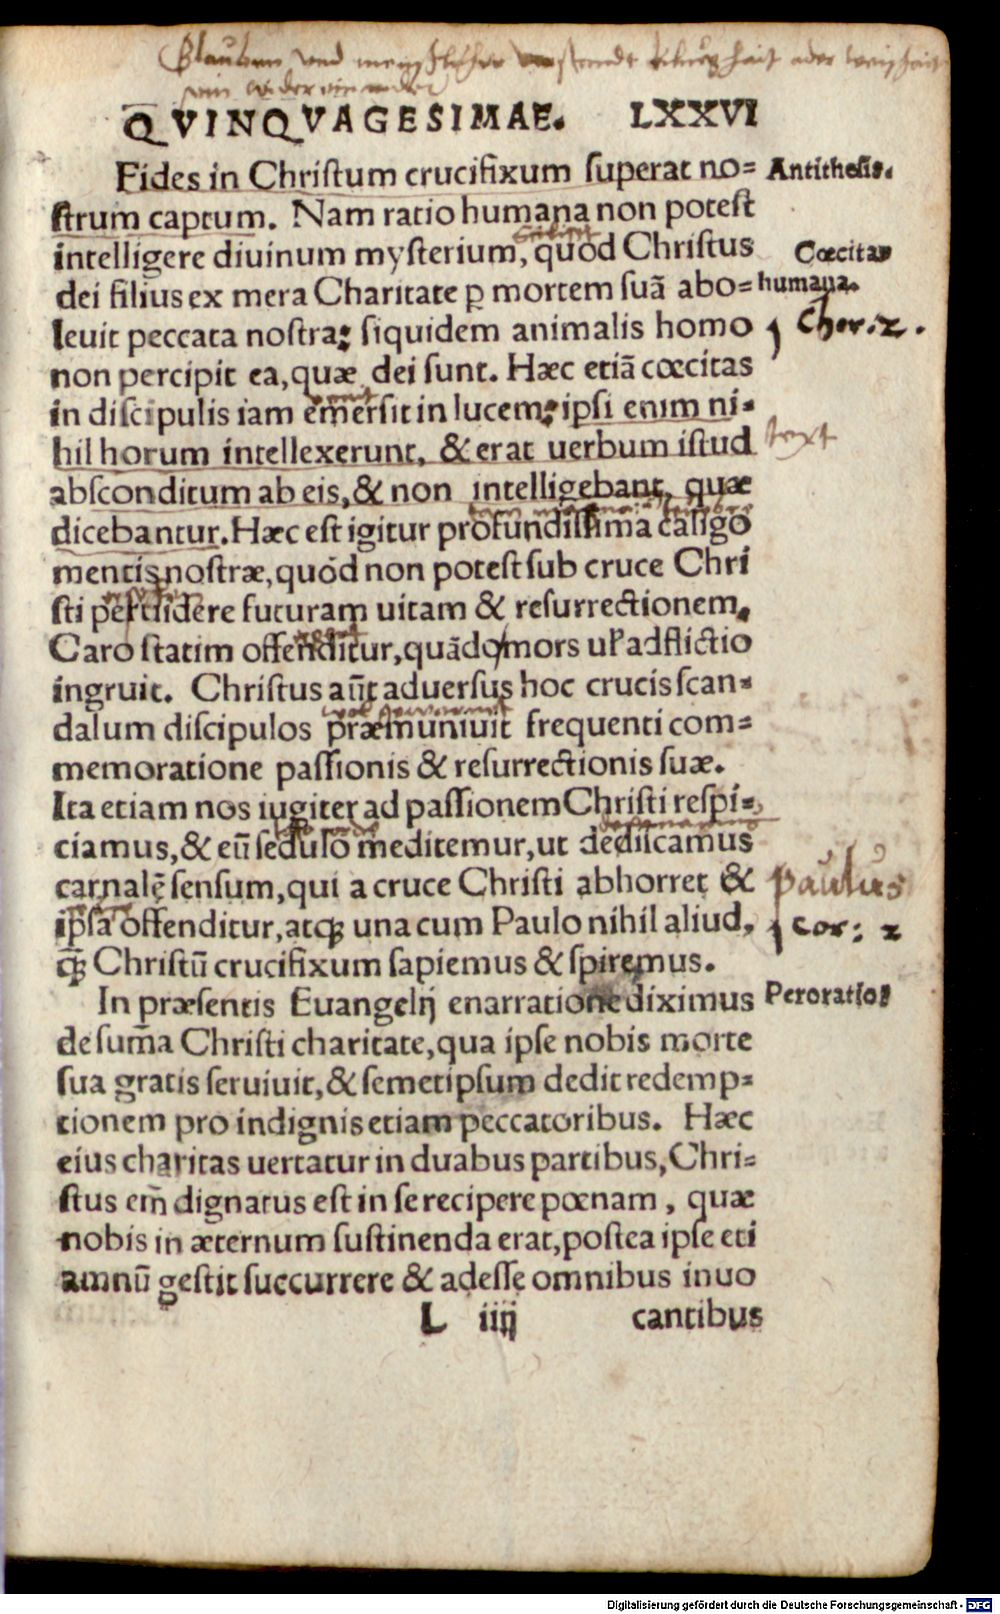 Glauben und menschlicher verstandt
sein wider ein ander
QVINQVAGESIMAE. LXXVI
Fides in Christum crucifixum superat no=
strum captum. Nam ratio humana non potest
intelligere diuinum mysterium, quód Christus
dei filius ex mera Charitate ꝑ mortem suã abo=
leuit peccata nostra: siquidem animalis homo
non percipit ea, quæ dei sunt. Hæc etiã cœcitas
in discipulis iam emersit in lucem: ipsi enim ni=
hil horum intellexerunt, & erat uerbum istud
absconditum ab eis, & non intelligebant, quæ
dicebantur. Hæc est igitur profundissima caligo
mentis nostræ, quód non potest sub cruce Chri
sti peruidere futuram uitam & resurrectionem.
Caro statim offenditur, quãdo mors uł adflictio
ingruit. Christus aũt aduersus hoc crucis scan=
dalum discipulos præmuniuit frequenti com=
memoratione passionis & resurrectionis suæ.
Ita etiam nos iugiter ad passionem Christi respi=
ciamus, & eũ sedulo meditemur, ut dediscamus
carnalẽ sensum, qui a cruce Christi abhorret &
ipsa offenditur, atqꝫ una cum Paulo nihil aliud,
q̃ꝫ Christũ crucifixum sapiemus & spiremus.
In præsentis Euangelij enarratione diximus
de sum̃a Christi charitate, qua ipse nobis morte
sua gratis seruiuit, & semetipsum dedit redemp=
tionem pro indignis etiam peccatoribus. Hæc
eius charitas uertatur in duabus partibus, Chri=
stus em̃ dignatus est in se recipere pœnam, quæ
nobis in æternum sustinenda erat, postea ipse eti
amnũ gestit succurrere & adesse omnibus inuo
L iiij cantibus
Antithesis.
Cœcitas
humana.
1 Chor. 2.
text
Paulus
1 Cor: 2
Peroratio
Digitalisierung gefördert durch die Deutsche Forschungsgemeinschaft - DFG